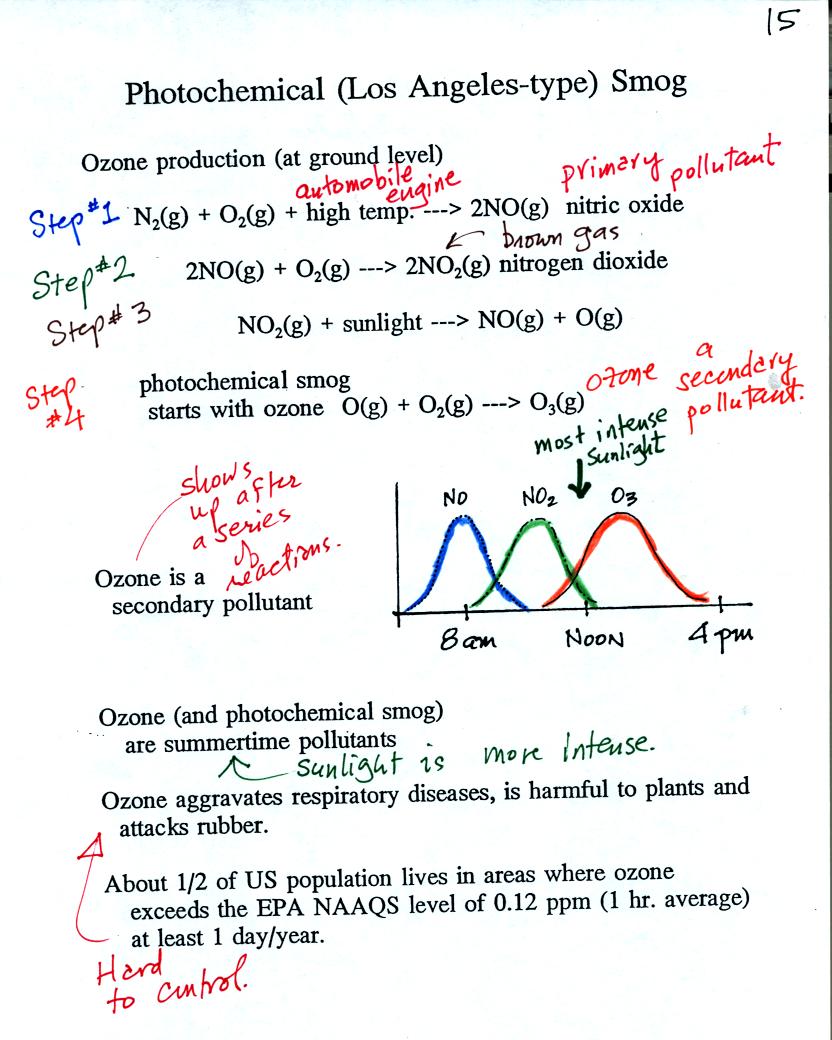 15
Photochemical (Los Angeles-type) Smog
Ozone production (at ground level)
automobile engine
primary pollutant
Step #1 N₂(g) + O₂(g) + high temp. ---> 2NO(g) nitric oxide
brown gas
Step #2 2NO(g) + O₂(g) ---> 2NO₂(g) nitrogen dioxide
Step # 3 NO₂(g) + sunlight ---> NO(g) + O(g)
Step #4 photochemical smog
starts with ozone O(g) + O₂(g) ---> O₃(g)
ozone a secondary pollutant.
most intense
sunlight
shows
up after
a series
of
reactions.
NO NO₂ O₃
Ozone is a
secondary pollutant
8am NOON 4pm
Ozone (and photochemical smog)
are summertime pollutants
sunlight is more intense.
Ozone aggravates respiratory diseases, is harmful to plants and
attacks rubber.
About 1/2 of US population lives in areas where ozone
exceeds the EPA NAAQS level of 0.12 ppm (1 hr. average)
at least 1 day/year.
Hard
to control.